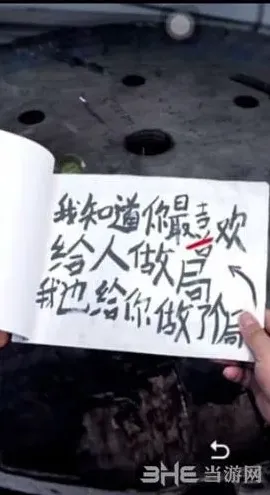 我知道你最喜欢
给人做局
我也给你做了局
3HE 当游网